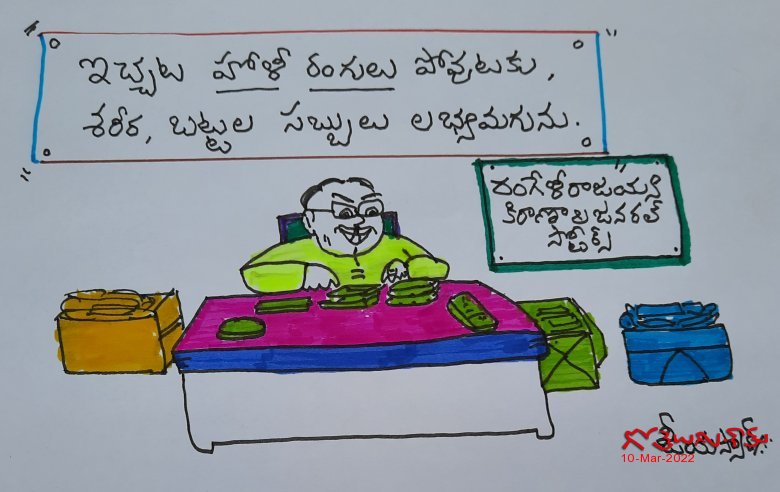 ఇచ్చట హోళీ రంగులు పోవుటకు,
శరీర, బట్టల సబ్బులు లభ్యమగును.
రంగేళీరాజయ్య
కిరాణా & జనరల్
స్టోర్స్
10-Mar-2022